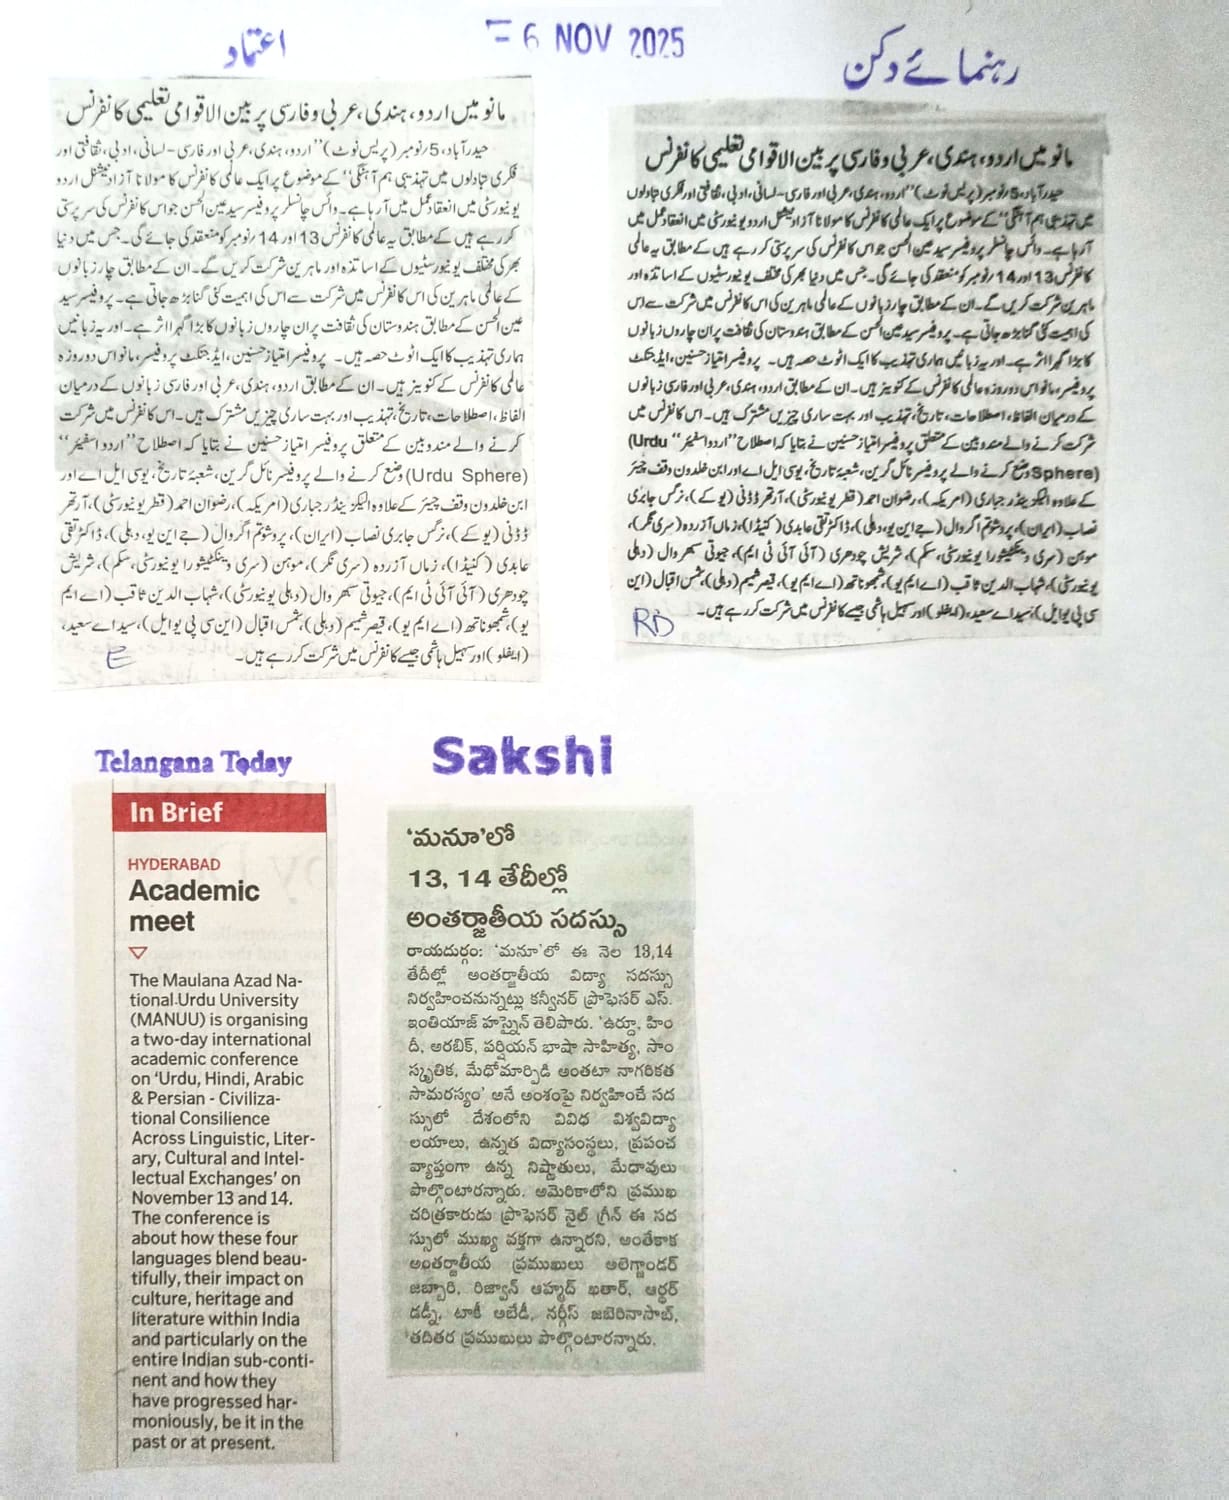 اعتماد
- 6 NOV 2025
رہنمائے دکن
مانو میں اردو، ہندی، عربی و فارسی پر بین الاقوامی تعلیمی کانفرنس
حیدرآباد، 5؍نومبر (پریس نوٹ) ”اردو، ہندی، عربی اور فارسی - لسانی، ادبی، ثقافتی اور
فکری تبادلوں میں تہذیبی ہم آہنگی“ کے موضوع پر ایک عالمی کانفرنس کا مولانا آزاد نیشنل اردو
یونیورسٹی میں انعقاد عمل میں آرہا ہے۔ وائس چانسلر پروفیسر سید عین الحسن جو اس کانفرنس کی سرپرستی
کررہے ہیں کے مطابق یہ عالمی کانفرنس 13 اور 14 نومبر کو منعقد کی جائے گی۔ جس میں دنیا
بھر کی مختلف یونیورسٹیوں کے اساتذہ اور ماہرین شرکت کریں گے۔ ان کے مطابق چار زبانوں
کے عالمی ماہرین کی اس کانفرنس میں شرکت سے اس کی اہمیت کئی گنا بڑھ جاتی ہے۔ پروفیسر سید
عین الحسن کے مطابق ہندوستان کی ثقافت پر ان چاروں زبانوں کا بڑا گہرا اثر ہے۔ اور یہ زبانیں
ہماری تہذیب کا ایک اٹوٹ حصہ ہیں۔ پروفیسر امتیاز حسنین، ایڈجنکٹ پروفیسر، مانو اس دو روزہ
عالمی کانفرنس کے کنوینر ہیں۔ ان کے مطابق اردو، ہندی، عربی اور فارسی زبانوں کے درمیان
الفاظ، اصطلاحات، تاریخ، تہذیب اور بہت ساری چیزیں مشترک ہیں۔ اس کانفرنس میں شرکت
کرنے والے مندوبین کے متعلق پروفیسر امتیاز حسنین نے بتایا کہ اصطلاح ”اردو اسفیئر“
(Urdu Sphere) وضع کرنے والے پروفیسر نائل گرین، شعبۂ تاریخ، یوسی ایل اے اور
ابن خلدون وقف چیئر کے علاوہ الیگزینڈر جباری (امریکہ)، رضوان احمد (قطر یونیورسٹی)، آرتھر
ڈڈنی (یو کے)، نرگس جابری نصاب (ایران)، پروشوتم اگروال (جے این یو، دہلی)، ڈاکٹر تقی
عابدی (کنیڈا)، زماں آزردہ (سری نگر)، موہن (سری وینکٹیشورا یونیورسٹی، سکم)، شریش
چودھری (آئی آئی ٹی ایم)، جیوتی سبھروال (دہلی یونیورسٹی)، شہاب الدین ثاقب (اے ایم
یو)، شمبھوناتھ (اے ایم یو)، قیصر شمیم (دہلی)، شمس اقبال (این سی پی یو ایل)، سید اے سعید،
(ایفلو) اور سہیل ہاشمی جیسے کانفرنس میں شرکت کررہے ہیں۔
E
مانو میں اردو، ہندی، عربی و فارسی پر بین الاقوامی تعلیمی کانفرنس
حیدرآباد، 5؍نومبر (پریس نوٹ) ”اردو، ہندی، عربی اور فارسی - لسانی، ادبی، ثقافتی اور فکری تبادلوں
میں تہذیبی ہم آہنگی“ کے موضوع پر ایک عالمی کانفرنس کا مولانا آزاد نیشنل اردو یونیورسٹی میں انعقاد عمل میں
آرہا ہے۔ وائس چانسلر پروفیسر سید عین الحسن جو اس کانفرنس کی سرپرستی کررہے ہیں کے مطابق یہ عالمی
کانفرنس 13 اور 14؍نومبر کو منعقد کی جائے گی۔ جس میں دنیا بھر کی مختلف یونیورسٹیوں کے اساتذہ اور
ماہرین شرکت کریں گے۔ ان کے مطابق چار زبانوں کے عالمی ماہرین کی اس کانفرنس میں شرکت سے اس
کی اہمیت کئی گنا بڑھ جاتی ہے۔ پروفیسر سید عین الحسن کے مطابق ہندوستان کی ثقافت پر ان چاروں زبانوں
کا بڑا گہرا اثر ہے۔ اور یہ زبانیں ہماری تہذیب کا ایک اٹوٹ حصہ ہیں۔ پروفیسر امتیاز حسنین، ایڈجنکٹ
پروفیسر، مانو اس دو روزہ عالمی کانفرنس کے کنوینر ہیں۔ ان کے مطابق اردو، ہندی، عربی اور فارسی زبانوں
کے درمیان الفاظ، اصطلاحات، تاریخ، تہذیب اور بہت ساری چیزیں مشترک ہیں۔ اس کانفرنس میں
شرکت کرنے والے مندوبین کے متعلق پروفیسر امتیاز حسنین نے بتایا کہ اصطلاح ”اردو اسفیئر“ (Urdu
Sphere) وضع کرنے والے پروفیسر نائل گرین، شعبۂ تاریخ، یوسی ایل اے اور ابن خلدون وقف چیئر
کے علاوہ الیگزینڈر جباری (امریکہ)، رضوان احمد (قطر یونیورسٹی)، آرتھر ڈڈنی (یو کے)، نرگس جابری
نصاب (ایران)، پروشوتم اگروال (جے این یو، دہلی)، ڈاکٹر تقی عابدی (کنیڈا)، زماں آزردہ (سری نگر)،
موہن (سری وینکٹیشورا یونیورسٹی، سکم)، شریش چودھری (آئی آئی ٹی ایم)، جیوتی سبھروال (دہلی
یونیورسٹی)، شہاب الدین ثاقب (اے ایم یو)، شمبھوناتھ (اے ایم یو)، قیصر شمیم (دہلی)، شمس اقبال (این
سی پی یو ایل)، سید اے سعید، (ایفلو) اور سہیل ہاشمی جیسے کانفرنس میں شرکت کررہے ہیں۔
RD
Telangana Today
In Brief
HYDERABAD
Academic
meet
The Maulana Azad Na-
tional Urdu University
(MANUU) is organising
a two-day international
academic conference
on ‘Urdu, Hindi, Arabic
& Persian - Civiliza-
tional Consilience
Across Linguistic, Liter-
ary, Cultural and Intel-
lectual Exchanges’ on
November 13 and 14.
The conference is
about how these four
languages blend beau-
tifully, their impact on
culture, heritage and
literature within India
and particularly on the
entire Indian sub-conti-
nent and how they
have progressed har-
moniously, be it in the
past or at present.
Sakshi
‘మనూ’లో
13, 14 తేదీల్లో
అంతర్జాతీయ సదస్సు
రాయదుర్గం: ‘మనూ’లో ఈ నెల 13,14
తేదీల్లో అంతర్జాతీయ విద్యా సదస్సు
నిర్వహించనున్నట్లు కన్వీనర్ ప్రొఫెసర్ ఎస్.
ఇంతియాజ్ హస్నైన్ తెలిపారు. ‘ఉర్దూ, హిం
దీ, అరబిక్, పర్షియన్ భాషా సాహిత్య, సాం
స్కృతిక, మేధోమార్పిడి అంతటా నాగరికత
సామరస్యం’ అనే అంశంపై నిర్వహించే సద
స్సులో దేశంలోని వివిధ విశ్వవిద్యా
లయాలు, ఉన్నత విద్యాసంస్థలు, ప్రపంచ
వ్యాప్తంగా ఉన్న నిష్ణాతులు, మేధావులు
పాల్గొంటారన్నారు. అమెరికాలోని ప్రముఖ
చరిత్రకారుడు ప్రొఫెసర్ నైల్ గ్రీన్ ఈ సద
స్సులో ముఖ్య వక్తగా ఉన్నారని, అంతేకాక
అంతర్జాతీయ ప్రముఖులు అలెగ్జాండర్
జబ్బారి, రిజ్వాన్ అహ్మద్ ఖతార్, ఆర్థర్
డడ్నీ, టాకీ అబేడీ, నర్గీస్ జబెరినాసాబ్,
తదితర ప్రముఖులు పాల్గొంటారన్నారు.